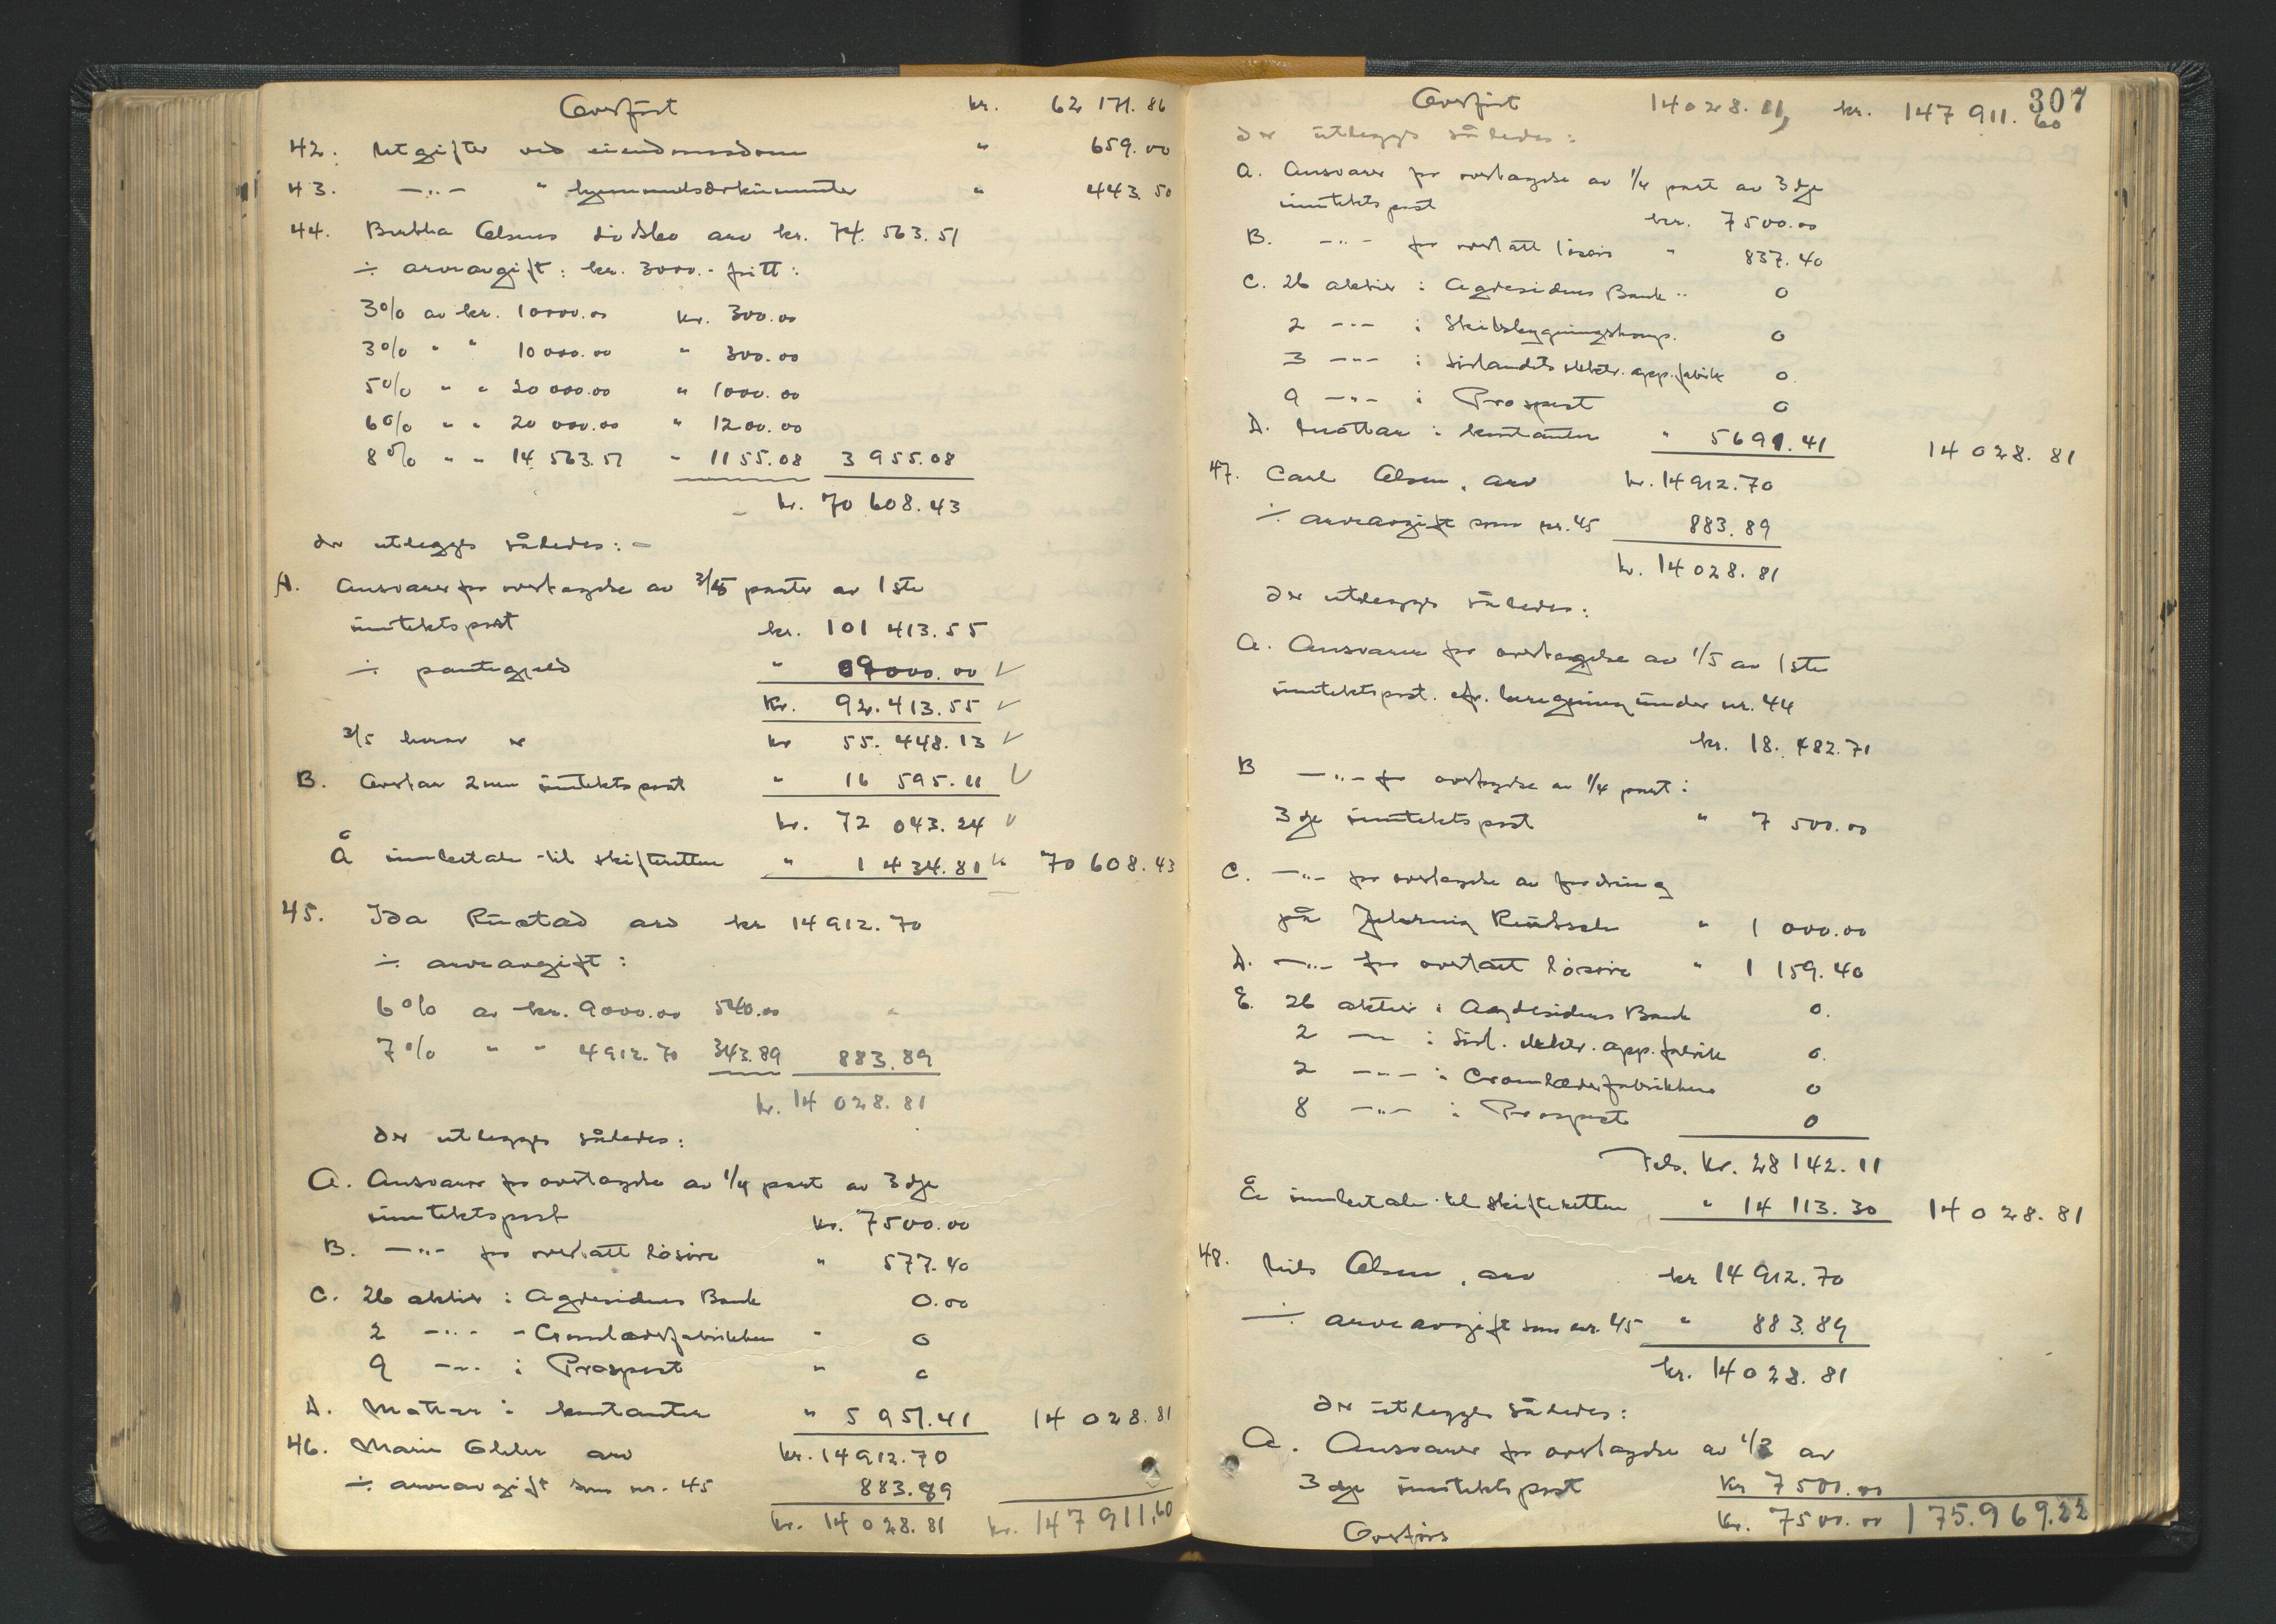 Overført kr. 62 171.86
42. Utgifter ved eiendomsdom " 659.00
43. —"— " hjemmelsdokumenter " 443.50
44. Olsens dødsbo arv kr. 74.563.51
÷ arveavgift: kr. 3000.- fritt:
3% av kr. 10000.00 kr. 300.00
3% " " 10000.00 " 300.00
5% " " 20000.00 " 1000.00
6% " " 20000.00 " 1200.00
8% " " 14563.51 " 1155.08 3955.08
kr. 70608.43
der utlegges således: -
A. Ansvaret for overtagelse av 3/5 parter av 1ste
inntektspost kr. 101 413.55
÷ pantegjeld " 09000.00 √
Kr. 92.413.55 √
3/5 herav er kr 55.448.13 √
B. Overtar 2nen inntektspost " 16 595.11 √
kr. 72 043.24 √
Å innbetale til skifteretten " 1 434.81 " 70608.43
45. Ida Rustad arv kr 14912.70
÷ arveavgift:
6% av kr. 9000.00 540.00
7% " " 4912.70 343.89 883.89
kr. 14 028.81
der utlegges således:
A. Ansvaret for overtagelse av 1/4 part av 3dje
inntektspost kr. 7500.00
B. —"— for overtatt løsøre " 577.40
C. 26 aktier i Agdesidens Bank 0.00
2 —"— - Cromlæderfabrikken " 0
9 —"— i Prospect " 0
D. Mottar i kontanter " 5951.41 14 028.81
46. Marie arv kr. 14912.70
÷ arveavgift som nr. 45 883.89
kr. 14028.81 kr. 147 911.60
307
Overført 14028.81, kr. 147 911.60
der utlegges således:
A. Ansvaret for overtagelse av 1/4 part av 3dje
inntektspost kr. 7500.00
B. —"— for overtatt løsøre " 837.40
C. 26 aktier i Agdesidens Bank " 0
2 —"— i Skibsbygningskomp. 0
3 —"— i Sørlandets elektr. app. fabrik 0
9 —"— i Prospect 0
D. Mottar i kontanter " 5691.41 14 028.81
47. Carl Olsen, arv kr. 14912.70
÷ arveavgift som nr. 45 883.89
kr. 14028.81
der utlegges således:
A. Ansvaret for overtagelse av 1/5 av 1ste
inntektspost. cfr. beregning under nr. 44
kr. 18.482.71
B —"— for overtagelse av 1/4 part i
3dje inntektspost " 7 500.00
C. —"— for overtagelse av fordring
på " 1 000.00
D. —"— for overtatt løsøre " 1 159.40
E. 26 aktier i Agdesidens Bank 0.
2 —"— i Sørl. elektr. app. fabrik 0.
2 —"— i Cromlæderfabrikken 0
8 —"— i Prospect 0
Tils. Kr. 28142.11
Å innbetale til skifteretten " 14 113.30 14 028.81
48. Nils Olsen, arv kr 14912.70
÷ arveavgift som nr. 45 " 883.89
kr. 14028.81
der utlegges således:
A. Ansvaret for overtagelse av av
3dje inntektspost kr 7500.00
Overføres kr. 7500.00 175.969.22